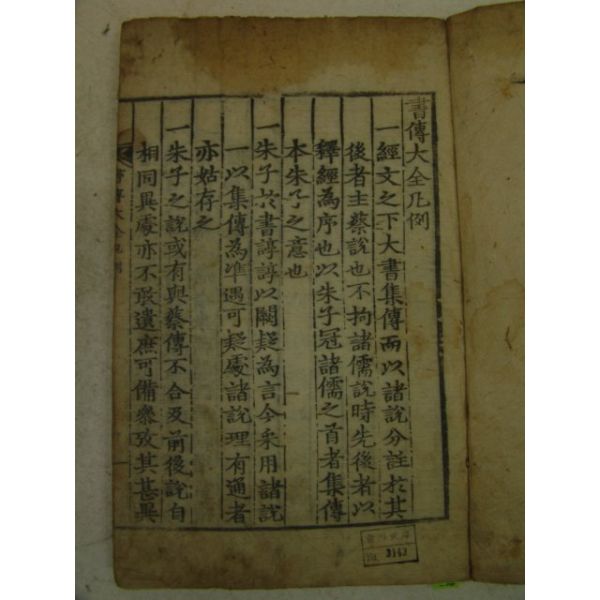 書傳大全凡例
一經文之下大書集傳而以諸說分註於其
後者主蔡說也不拘諸儒說時先後者以
釋經為序也以朱子冠諸儒之首者集傳
本朱子之意也
一朱子於書諄諄以闕疑為言今采用諸說
一以集傳為準遇可疑處諸說理有通者
亦姑存之
一朱子之說或有與蔡傳不合及前後說自
相同異處亦不敢遺庶可備參攷其甚異
書傳大全凡例
3143